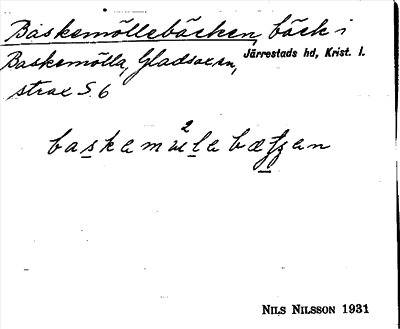 Baskemöllebäcken, bäck i
Baskemölla, Gladsax sn, Järrestads hd, Krist. l.
strax S. 6
NILS NILSSON 1931